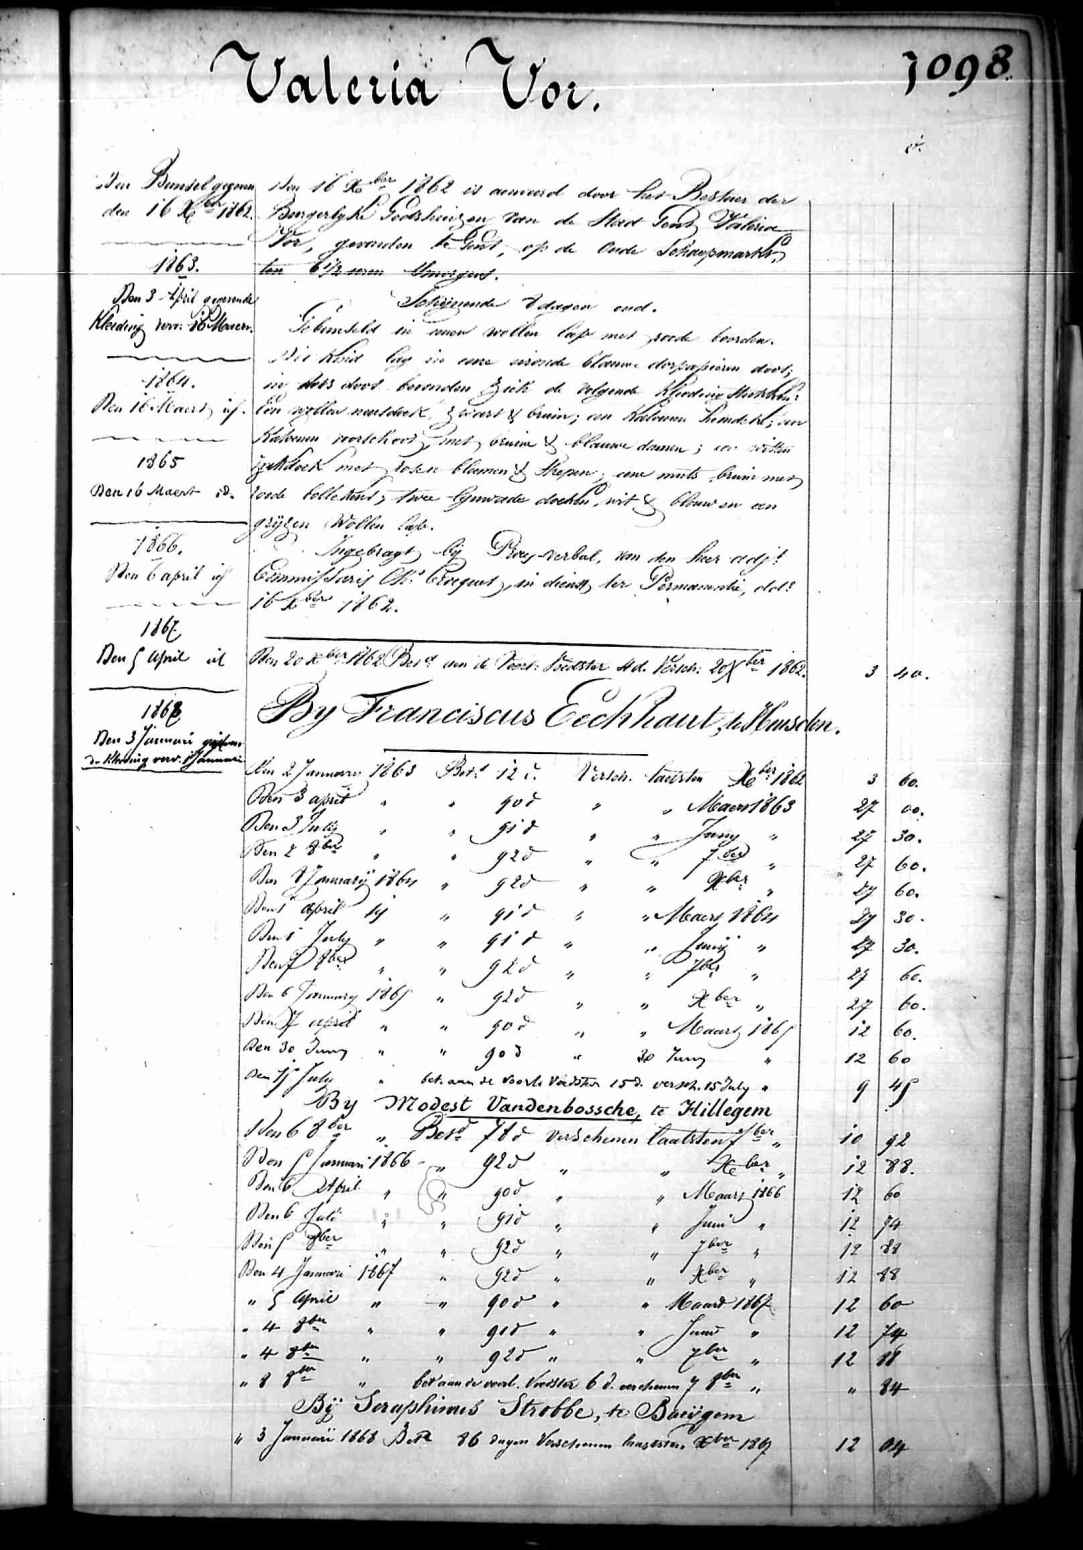 Valeria Vor.
1098
Den Bunsel gegeven
den 16 Xber 1862.
1863.
Den 3 April gegeven de
Kleeding verv. 16 Maert.
1864.
Den 16 Maert id.
1865
Den 16 Maert id.
1866.
Den 6 april id
1867
Den 5 April id
1868
Den 3 Januari gegeven
de kleeding verv. 1 Januari
Den 16 Xber 1862 is aenveerd door het Bestuer der
Burgerlyke Godshuizen van de Stad Gent, Valeria
Vor, gevonden te Gent, op de Oude Schaepmarkt,
ten 6 1/2 uren 'smorgens.
Schynende 8 dagen oud.
Gebunseld in eenen wollen lap met roode boorden.
Die Kind lag in eene blauwe doos,
in deze doos bevonden zich de volgende Kleedingstukken:
Een wollen neusdoek, zwart & bruin; een Katoenen hemdeke; een
Katoenen voorschoot, met bruine & blauwe damen; een witten
zakdoek met rozen bloemen & strepen; eene muts bruin met
roode bollekens; twee lynwade doeken, wit & blauw en een
gryzen Wollen lap.
Ingebragt by Proces-verbal, van den heer adjt
Commissaris Chs Croquet, in dienst ter Permanentie, dato
16 Xber 1862.
Den 20 Xber 1862 Betd aen de Voorl. Voedster 4 d. Versch. 20 Xber 1862. 3 40.
By Franciscus Eeckhaut, te Heusden.
Den 2 January 1863 Betd 12 d. Versch. laetsten Xber 1862 3 60.
Den 3 april " " 90 d " " Maert 1863 27 00.
Den 3 July " " 91 d " " Juny " 27 30.
Den 2 8ber " " 92 d " " 7ber " 27 60.
Den 8 January 1864 " 92 d " " Xber " 27 60.
Den 1 april id " 91 d " " Maert 1864 27 30.
Den 1 July " " 91 d " " Juny " 27 30.
Den 7 8ber " " 92 d " " 7ber " 27 60.
Den 6 January 1865 " 92 d " " Xber " 27 60.
Den 7 april " " 90 d " " Maart 1865 12 60.
Den 30 Juny " " 90 d " 30 Juny " 12 60
Den 15 July " bet. aan de voorls Voedster 15 d. versch. 15 July " 9 45
By Modest Vandenbossche, te Hillegem
Den 6 8ber " Betd 78 d verschenen laatsten 7ber " 10 92
Den 5 Januari 1866 " 92 d " " Xber " 12 88.
Den 6 April " " 90 d " " Maart 1866 12 60
Den 6 Juli " " 91 d " " Juni " 12 74
Den 5 8ber " " 92 d " " 7ber " 12 88
Den 4 Januari 1867 " 92 d " " Xber " 12 88
" 5 April " " 90 d " " Maart 1867 12 60
" 4 8ber " " 91 d " " Juni " 12 74
" 4 8ber " " 92 d " " 7ber " 12 88
" 8 8ber " bet aan de voorl. Voedster 6 d. verschenen 7 8ber " " 84
Bij Seraphinus Strobbe, te Baeygem
" 3 Januarii 1868 Betd 86 dagen Verschenen laatsten Xber 1867 12 04